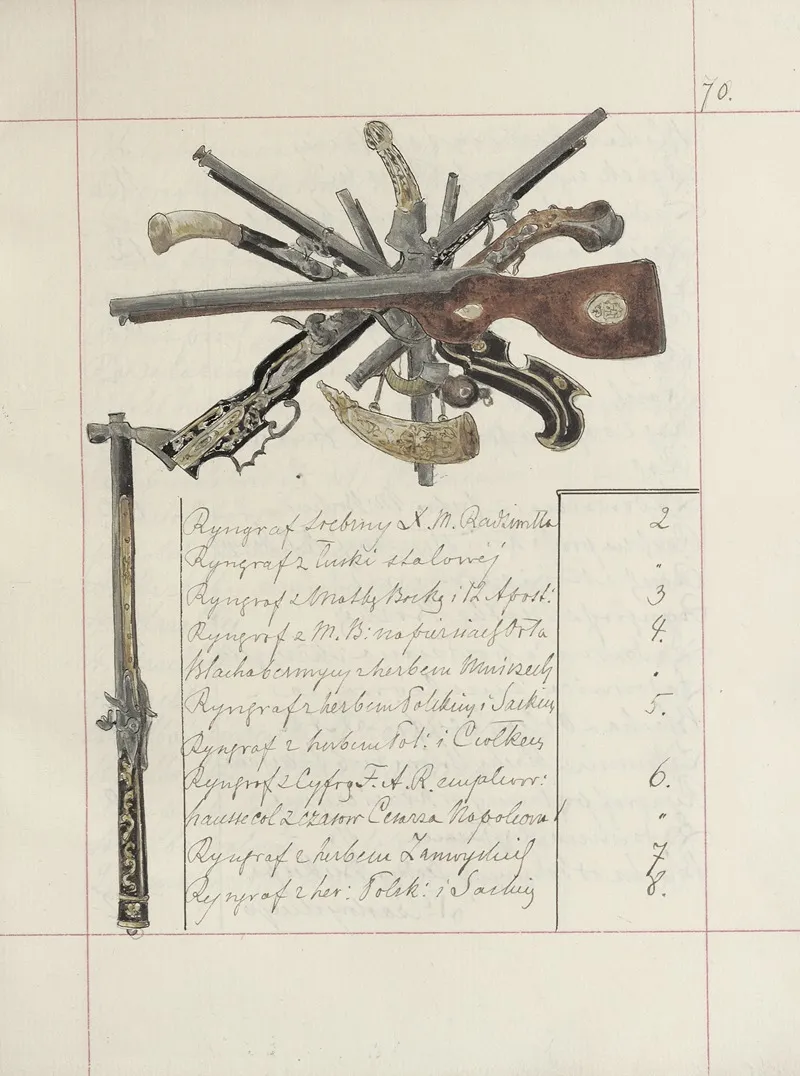 70.
Ryngraf srebrny X. M. Radziwiłła 2
Ryngraf z łuski stalowéj "
Ryngraf z Matką Boską i 12 Apost: 3
Ryngraf z M. B: na piersiach Orła 4.
Blacha z herbem Mniszech .
Ryngraf z herbem Polskim i Saskim 5.
Ryngraf z herbem Pol: i Ciołkiem
Ryngraf z Cyfrą F. A. R. 6.
haussecol z czasów Cesarza Napoleona I "
Ryngraf z herbem Zamoyskich 7
Ryngraf z her: Polsk: i Saskim 8.